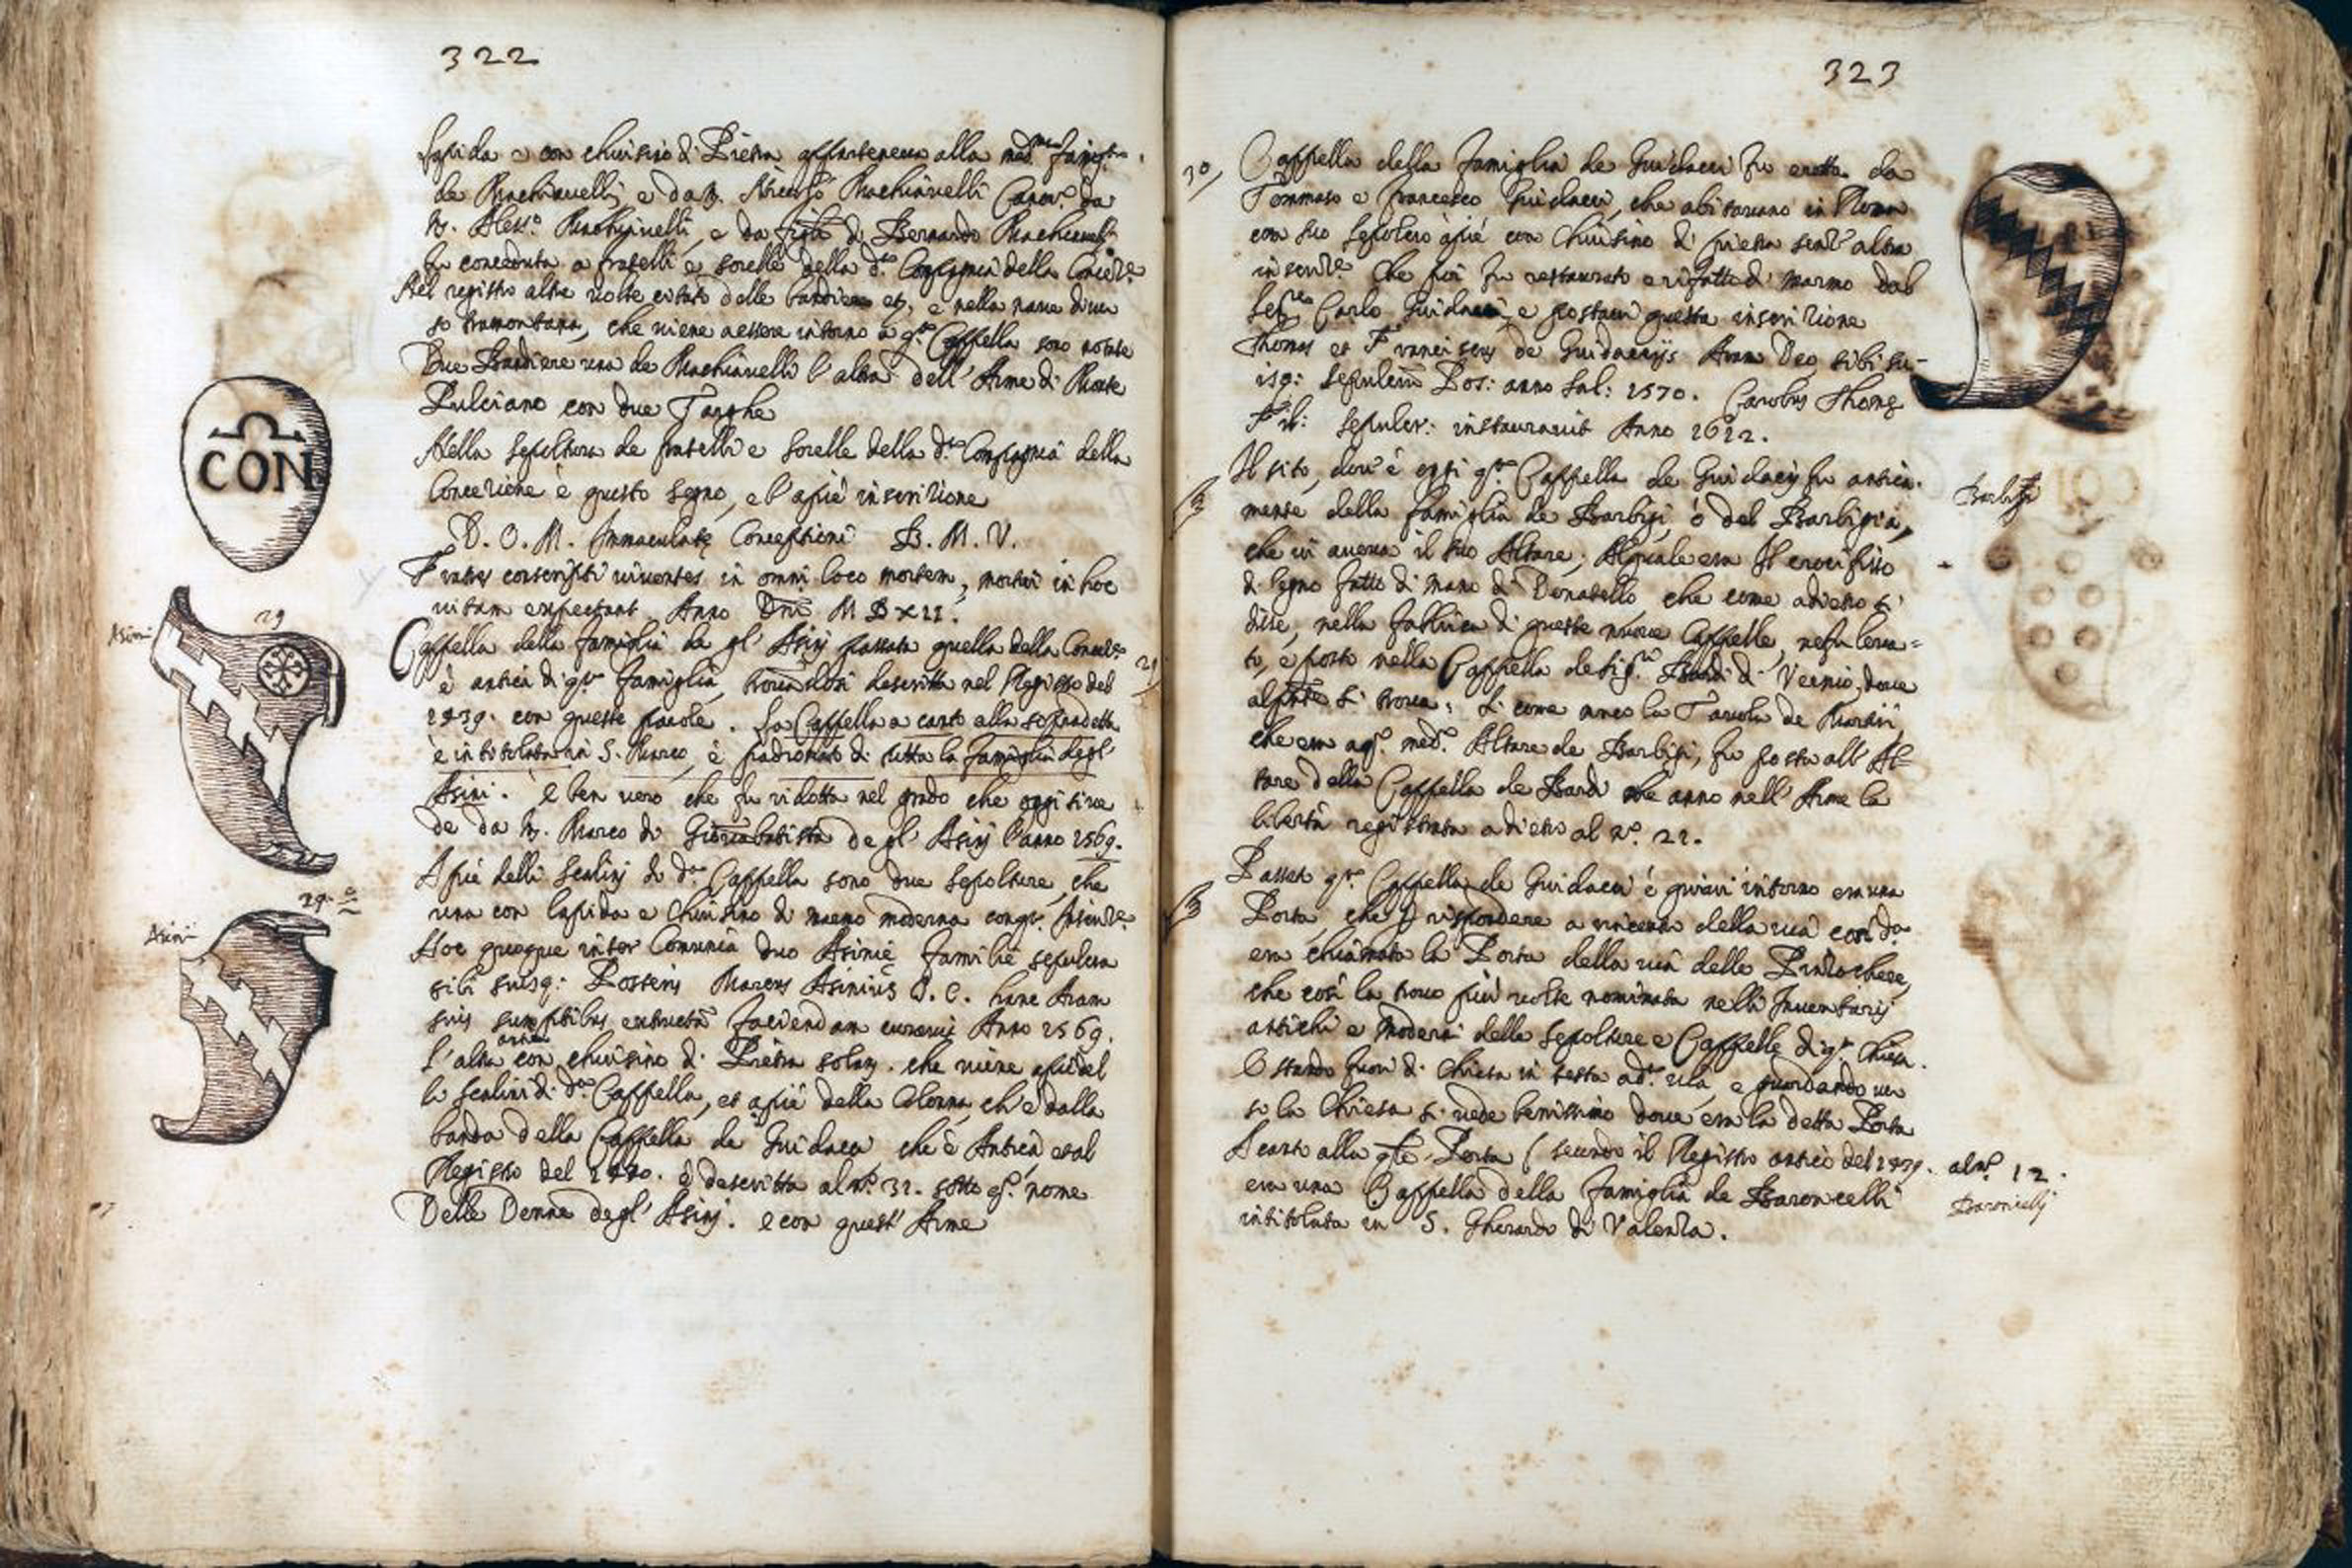 322
lapida e con chiusino di Pietra apparteneva alla med.ma famig.a
de Machiavelli, e da M. Machiavelli Canon.o da
M. Aless.o Machiavelli, e da figli di Bernardo Machiavelli
fu conceduta a fratelli e sorelle della d.a Compagnia della Concez.e
Nel registro altre volte citato delle bandiere etc, e nella nave di ver
so tramontana, che viene a essere intorno a q.ta Cappella sono notate
Due Bandiere una de Machiavelli l'altra dell'Arme di Monte
Pulciano con due Targhe
Nella sepoltura de fratelli e sorelle della d.a Compagnia della
Concezione è questo segno, e l'apié inscrizione
D. O. M. Immaculatę Conceptioni B. M. V.
Fratres conscripti viventes in omni loco mortem, mortui in hoc
vitam expectant Anno Dni MDXII.
CON
29
Asini
Cappella della famiglia de gl'Asinj passata quella della Concez.e
29
è antica di q.ta famiglia, trovandosi descritta nel Registro del
1439. con queste parole. La Cappella a canto alla sopradetta
è intitolata in S. Marco, è padronato di tutta la famiglia degl'
Asini. è ben vero che fu ridotta nel grado che oggi si ve
de da M. Marco di Giovanbatista degl'Asinj l'anno 1569.
Apié delli scalinj di d.a Cappella sono due sepolture, che
una con lapida e chiusino di marmo moderna con q.ta Inscriz.e
29. a
Asini
Hoc quoque inter Comunia duo Asinię familię sepulcra
sibi suisq: Posteris Marcus Asinius I. C. hanc Aram
suis sumptibus extructā faciendam curavit Anno 1569.
l'altra con arme chiusino di Pietra solam. che viene apié del
li scalini di d.a Cappella, et apié della Colonna, ch'è dalla
banda della Cappella de Guidacci che è Antica et al
Registro del 1440. è descritta al n.o 31. sotto q.o nome
Delle Donne degl'Asinj. e con quest'Arme
323
30,
Cappella della famiglia de Guidacci fu eretta da
Tommaso e Francesco Guidacci, che abitavano in Roma
con suo sepolcro apié con Chiusino di pietra senz'altra
inscriz.e Che poi fu restaurato e rifatto di marmo dal
Carlo Guidacci, e postavi questa inscrizione
Thomas et Franciscus de Guidaccijs Aram Deo sibi su-
isq: sepulcrū Pos: anno Sal: 1570. Carolus Thomę
Fil: sepulcr: instauravit Anno 1612.
Il sito, dov'è oggi q.ta Cappella de Guidaccj fu antica-
Barbigi
mente della famiglia de Barbigi, ó del Barbigia,
che vi aveva il suo Altare, Al quale era Il crocifisso
di legno fatto di mano di Donatello che come adietro si
disse, nella fabbrica di queste nuove Cappelle, ne fu leva=
to, e posto nella Cappella de Sig.ri Bardi di Vernio, dove
al pnte si trova: Si come anco la Tavola de Martiri,
che era a q.o med.o Altare de Barbigi, fu posta all'Al-
tare della Cappella de Bardi che anno nell'Arme la
libertà registrata adietro al n.o 21.
Passata q.ta Cappella de Guidacci è quivi intorno era una
Porta, che rispondere a rincontro della via così d.a
era chiamata la Porta della via delle Pinzochere,
che così la trovo più volte nominata nelli Inventarij
antichi e moderni delle sepolture e Cappelle di q.ta Chiesa.
E stando fuori di Chiesa in testa a d.a via, e guardando ver
so la Chiesa si vede benissimo dove era la detta Porta
Acanto alla Porta (secondo il Registro antico del 1439. al n.o 12.
era una Cappella della famiglia de Baroncelli
Baroncellj
intitolata in S. Gherardo di Valenza.